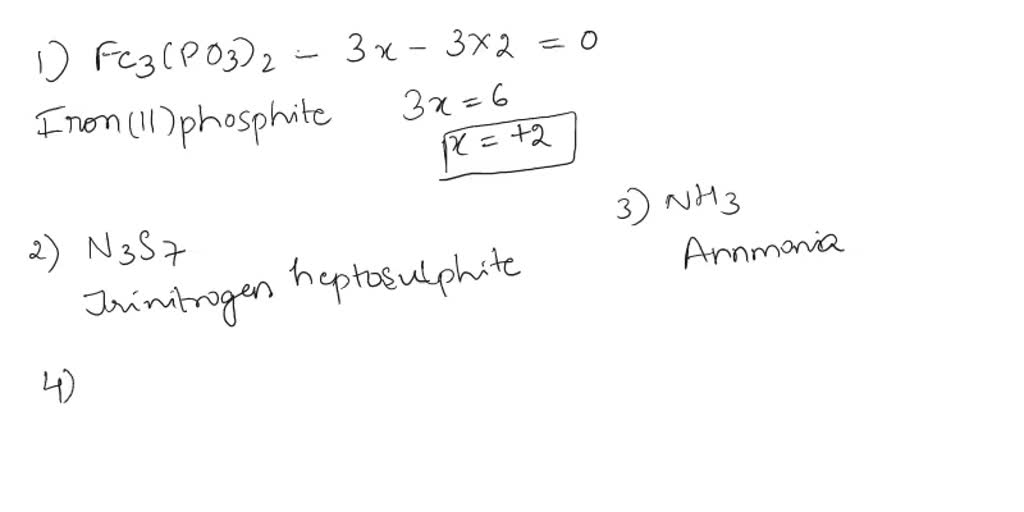 1) Fe3(PO3)2 - 3x - 3x2 = 0
Iron(II)phosphite 3x = 6
x = +2
2) N3S7
Trinitrogen heptosulphite
3) NH3
Ammonia
4)